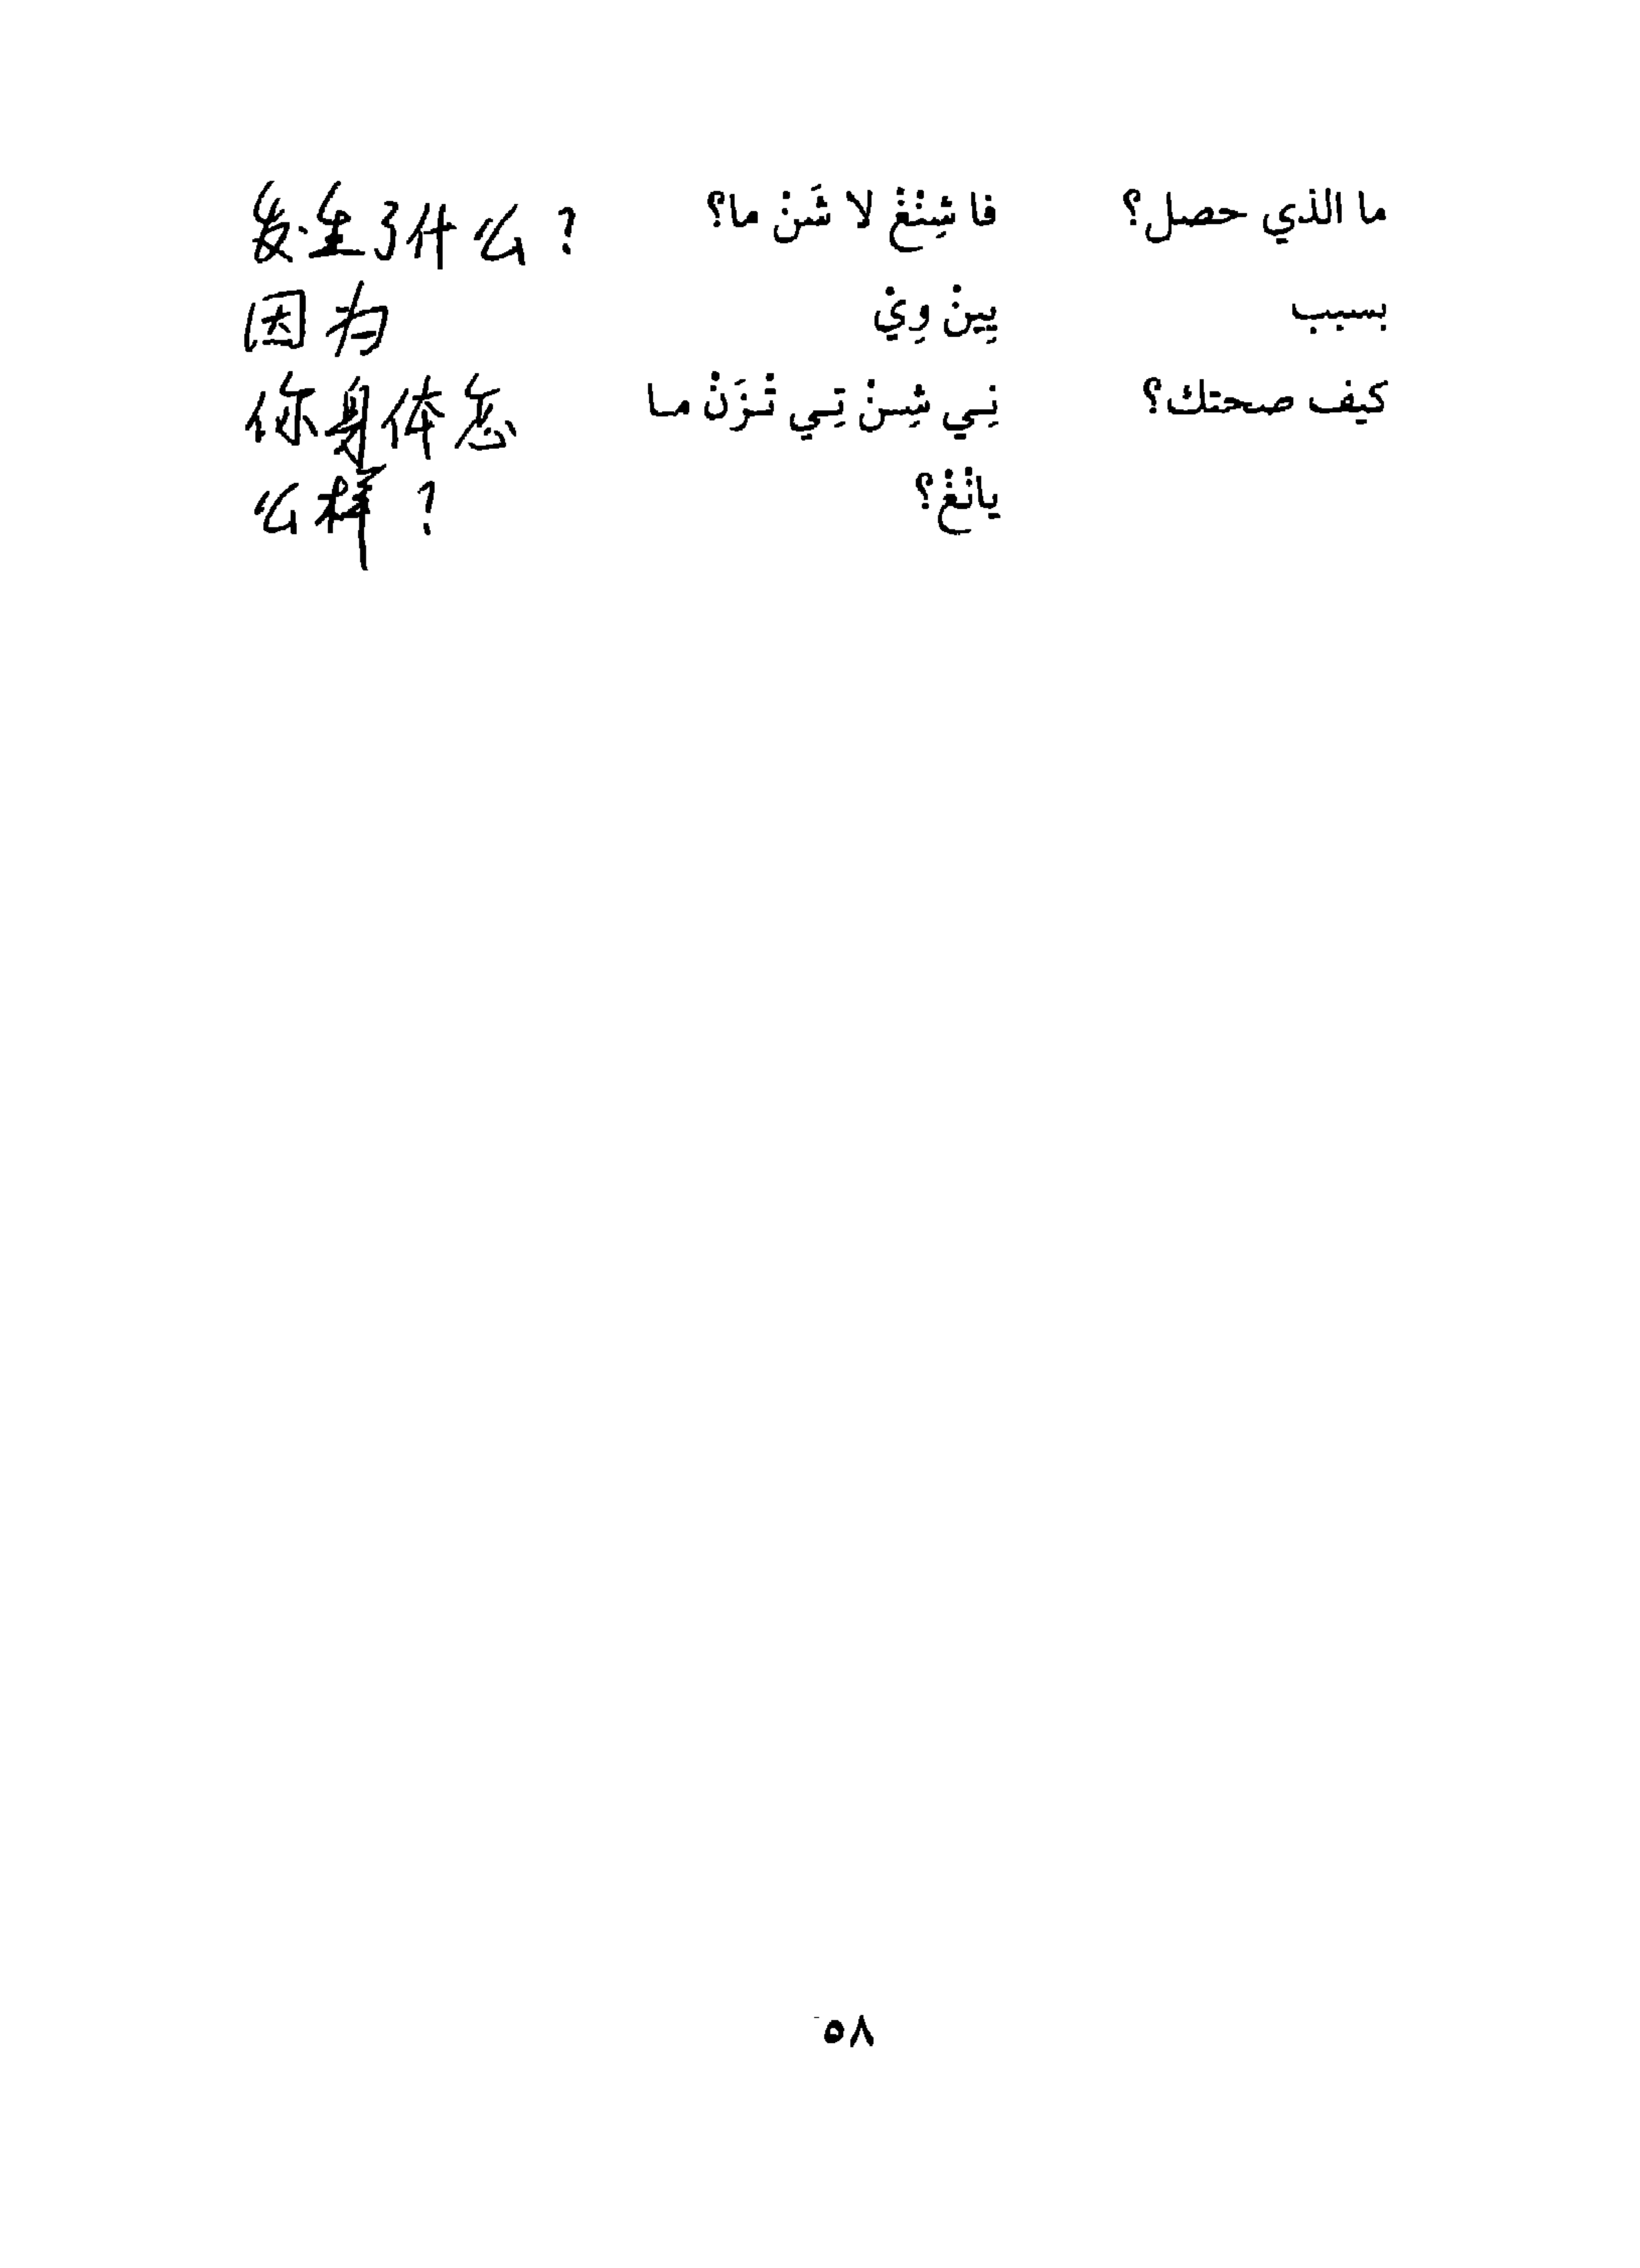 ما الذي حصل؟ فا شِنْغْ لا شَنْ ما؟ 发生了什么?
بسبب يِينْ وِيْ 因为
كيف صحتك؟ نِي شِسنْ تِي تْزَنْ ما 你身体怎
يانْغْ؟ 么样?
٥٨